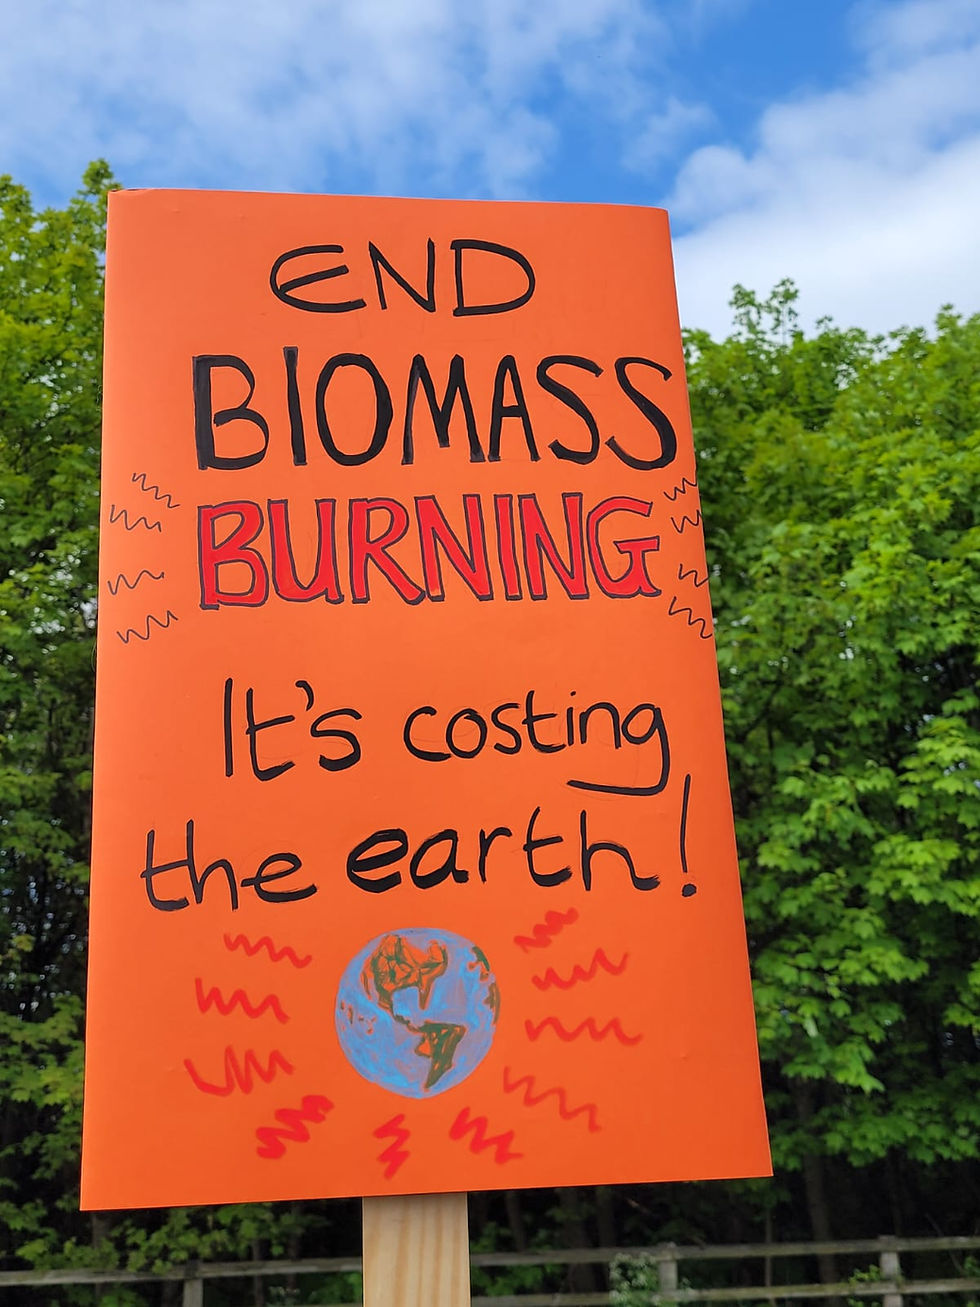 END
BIOMASS
BURNING
It's costing
the earth!